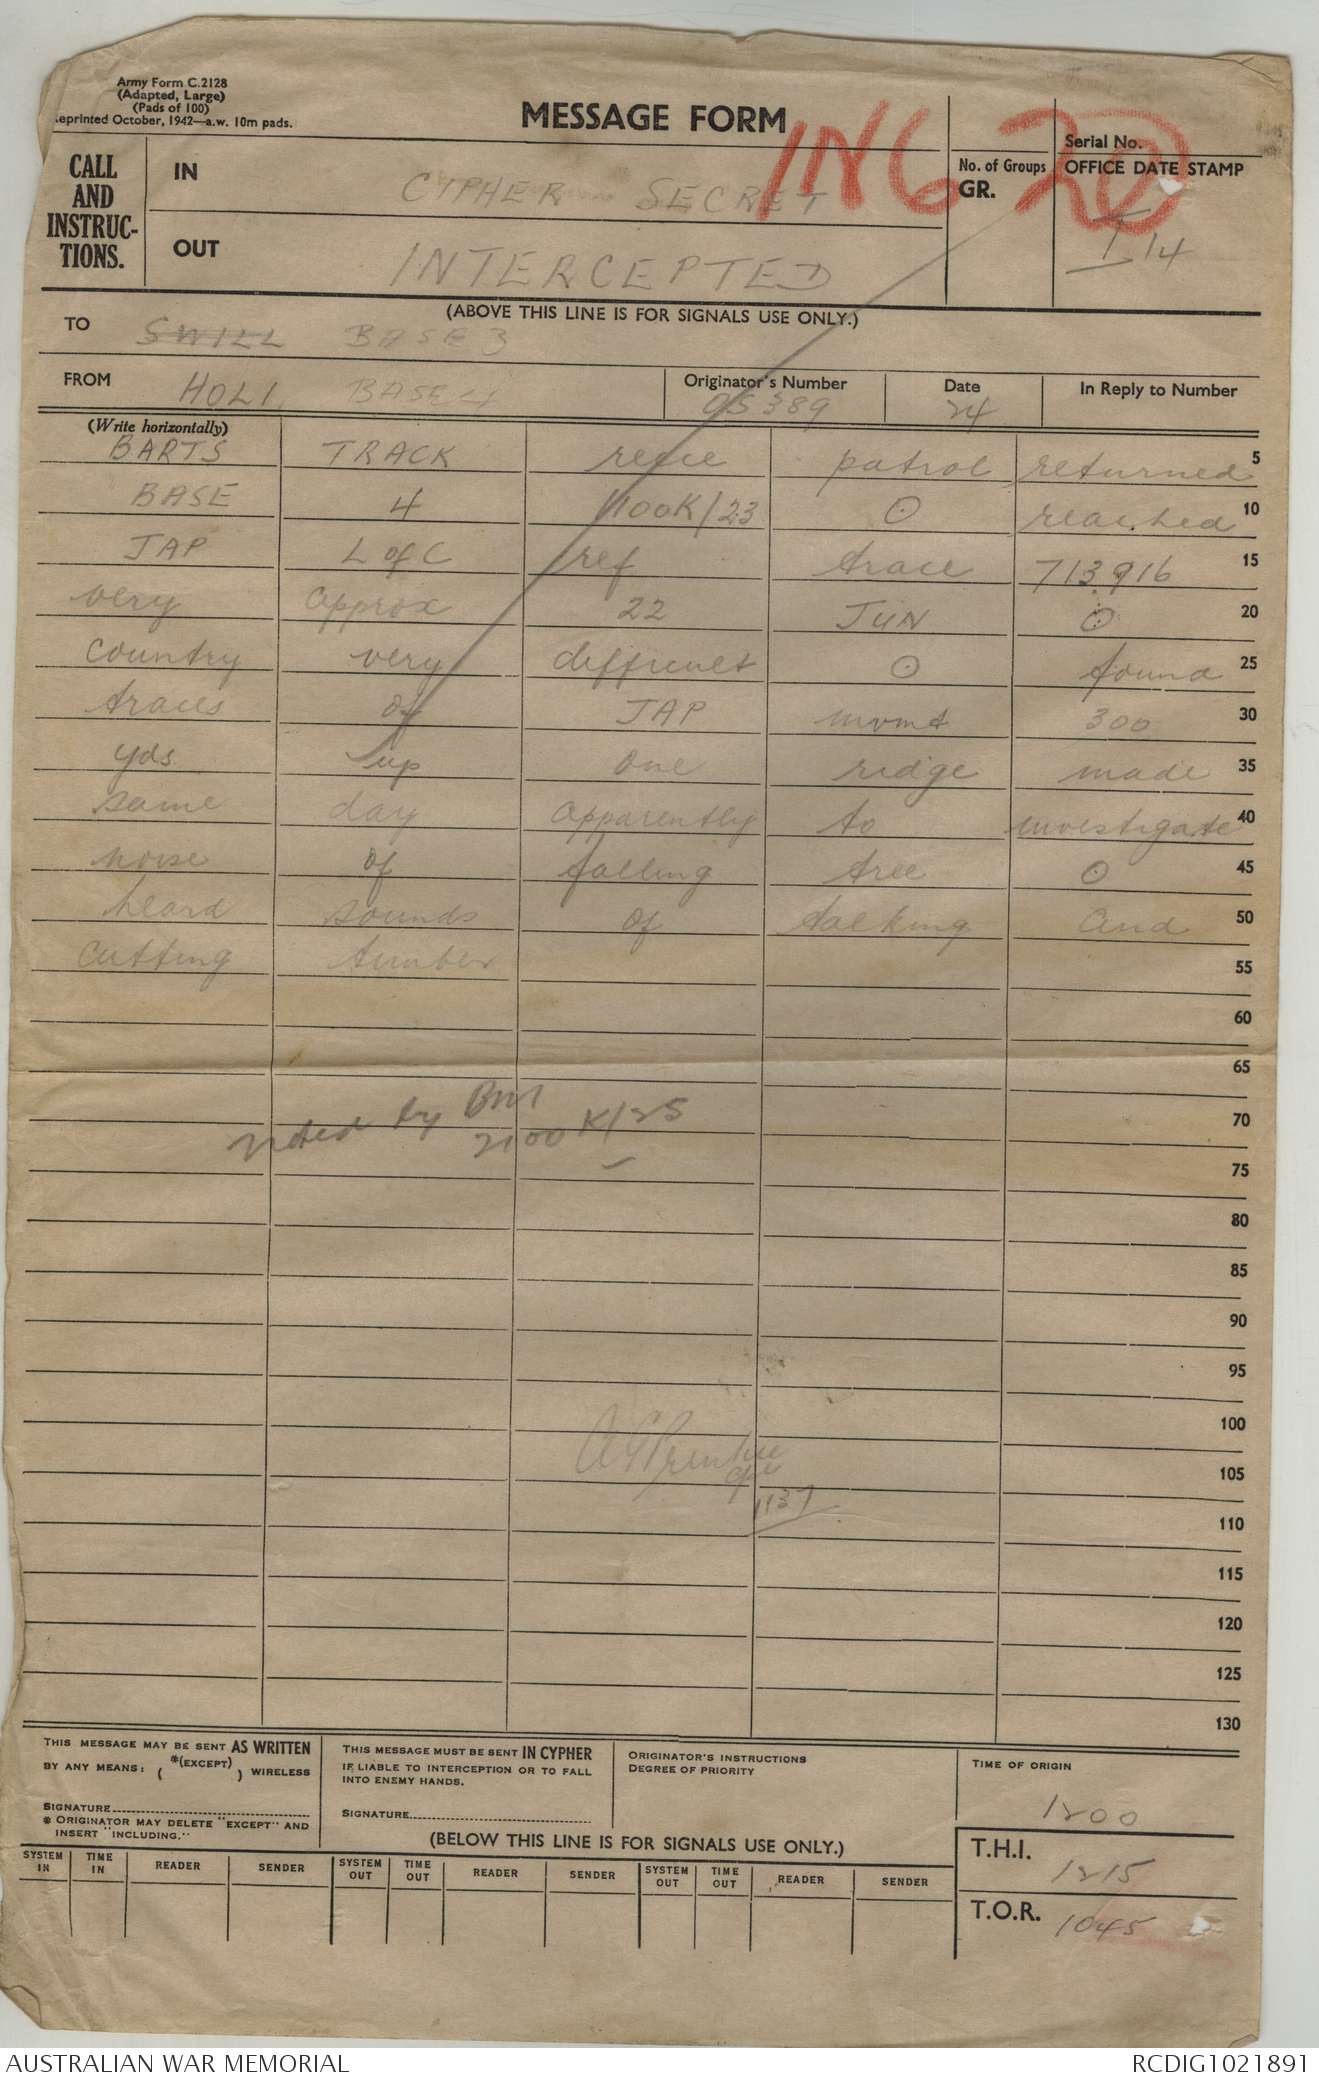 Army Form C.2128
(Adapted, Large)
(Pads of 100)
eprinted October, 1942—a.w. 10m pads.
MESSAGE FORM
CALL
AND
INSTRUC-
TIONS.
IN CIPHER SECRET
OUT INTERCEPTED
No. of Groups
GR.
Serial No.
OFFICE DATE STAMP
14
(ABOVE THIS LINE IS FOR SIGNALS USE ONLY.)
TO SWILL BASE 3
FROM HOLI BASE 4
Originator's Number
OS 389
Date
24
In Reply to Number
(Write horizontally)
BARTS TRACK recce patrol returned 5
BASE 4 1100K/23 ⊙ reached 10
JAP L of C ref trace 713916 15
very approx 22 JUN ⊙ 20
country very difficult ⊙ found 25
traces of JAP mvmt 300 30
yds up one ridge made 35
same day apparently to investigate 40
noise of falling tree ⊙ 45
heard sounds of talking and 50
cutting timber 55
60
65
noted by BM 70
2100 K/25
75
80
85
90
95
100
105
1137
110
115
120
125
130
THIS MESSAGE MAY BE SENT AS WRITTEN
BY ANY MEANS: ( *(EXCEPT) ) WIRELESS
SIGNATURE
* ORIGINATOR MAY DELETE "EXCEPT" AND
INSERT "INCLUDING."
THIS MESSAGE MUST BE SENT IN CYPHER
IF LIABLE TO INTERCEPTION OR TO FALL
INTO ENEMY HANDS.
SIGNATURE
ORIGINATOR'S INSTRUCTIONS
DEGREE OF PRIORITY
TIME OF ORIGIN
1200
(BELOW THIS LINE IS FOR SIGNALS USE ONLY.)
T.H.I. 1215
T.O.R. 1045
SYSTEM IN TIME IN READER SENDER SYSTEM OUT TIME OUT READER SENDER SYSTEM OUT TIME OUT READER SENDER
AUSTRALIAN WAR MEMORIAL RCDIG1021891